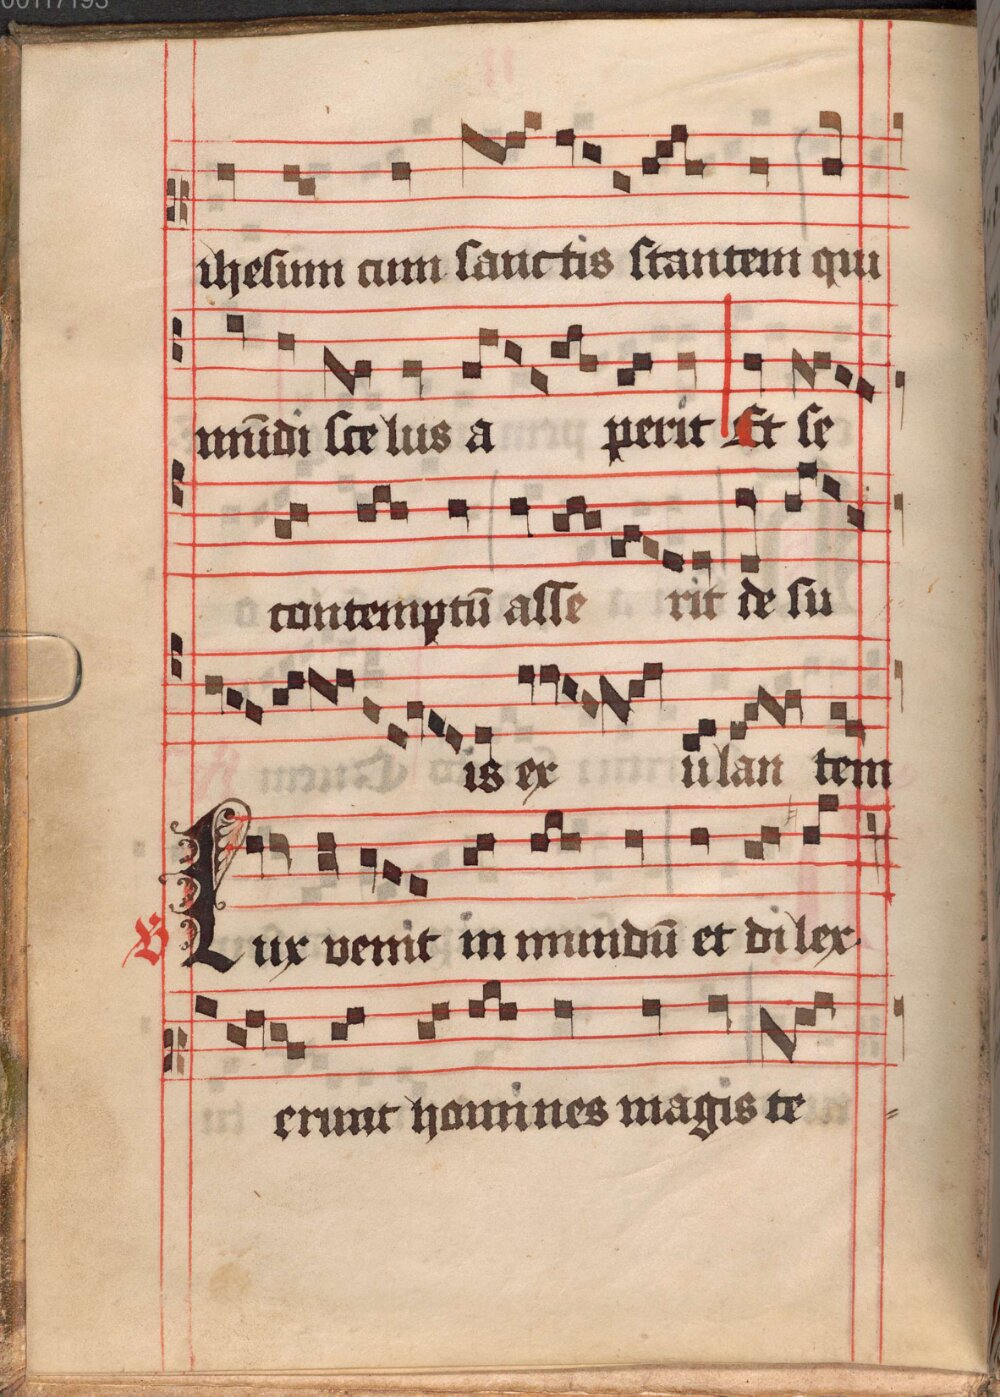 ihesum cum sanctis stantem qui
mu̅di sce lus a perit Et se
contemptu̅ asse rit de su
is ex ulan tem
V Lux venit in mundu̅ et di lex
erunt homines magis te